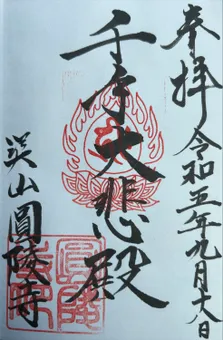 奉拝 令和五年九月十八日
千手大悲殿
山圓隆寺